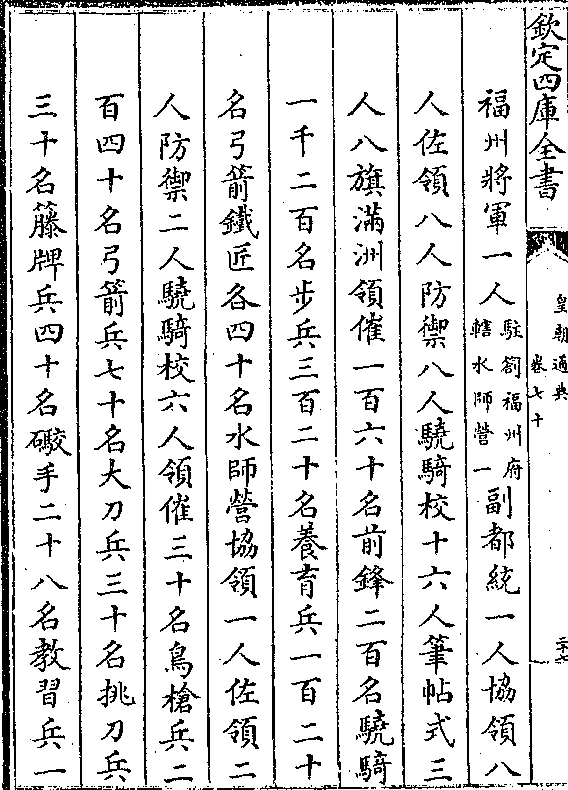 欽定四庫全書
皇朝通典
卷七十
福州將軍一人駐劄福州府轄水師營一副都統一人協領八
人佐領八人防禦八人驍騎校十六人筆帖式三
人八旗滿洲領催一百六十名前鋒二百名驍騎
一千二百名步兵三百二十名養育兵一百二十
名弓箭鐵匠各四十名水師營協領一人佐領二
人防禦二人驍騎校六人領催三十名鳥槍兵二
百四十名弓箭兵七十名大刀兵三十名挑刀兵
三十名籐牌兵四十名礮手二十八名教習兵一